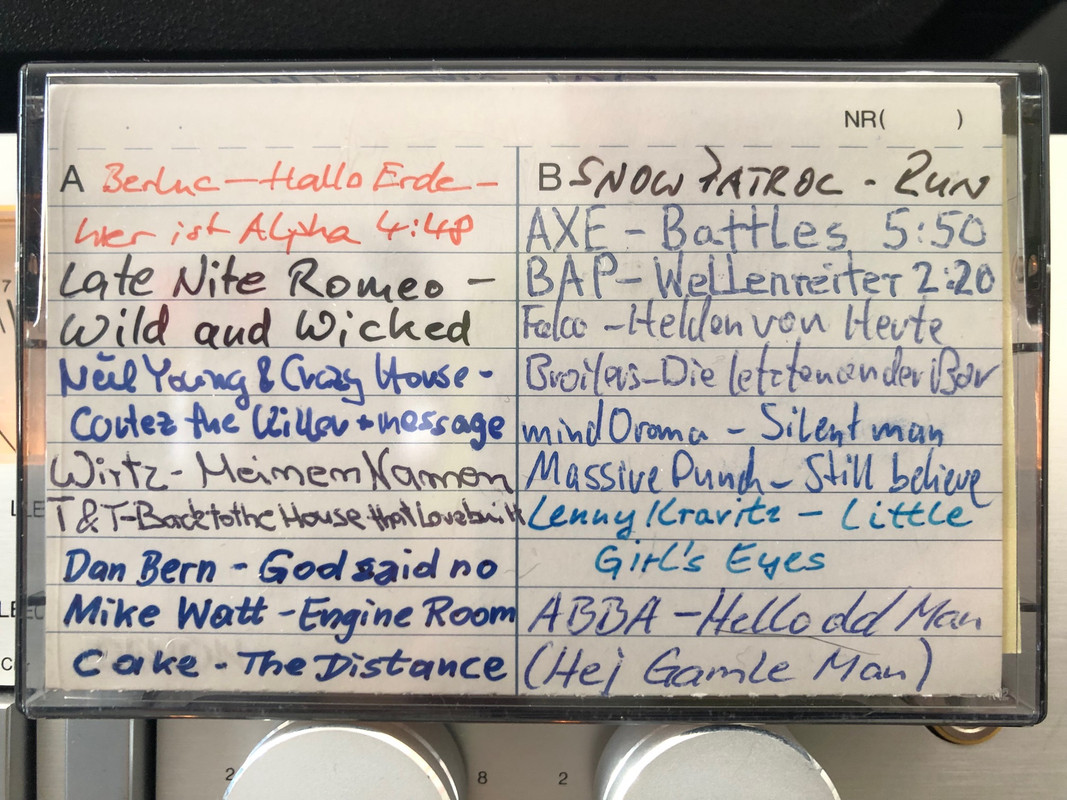 NR( )
A Berluc – Hallo Erde –
hier ist Alpha 4:48
Late Nite Romeo –
Wild and Wicked
Neil Young & Crazy House -
Cortez the Killer + message
Wirtz - Meinem Namen
T & T - Back to the House that Love built
Dan Bern - God said no
Mike Watt - Engine Room
Cake - The Distance
B SNOW PATROL - RUN
AXE - Battles 5:50
BAP - Wellenreiter 2:20
Falco - Helden von Heute
Broilers - Die letzten an der Bar
mind Orama - Silent man
Massive Punch - Still believe
Lenny Kravitz - Little
Girl's Eyes
ABBA - Hello old Man
(Hej Gamle Man)
2 8 2